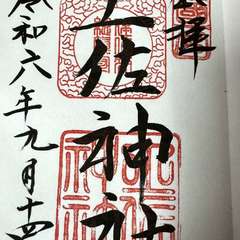 拝
土佐神社
令和六年九月十四